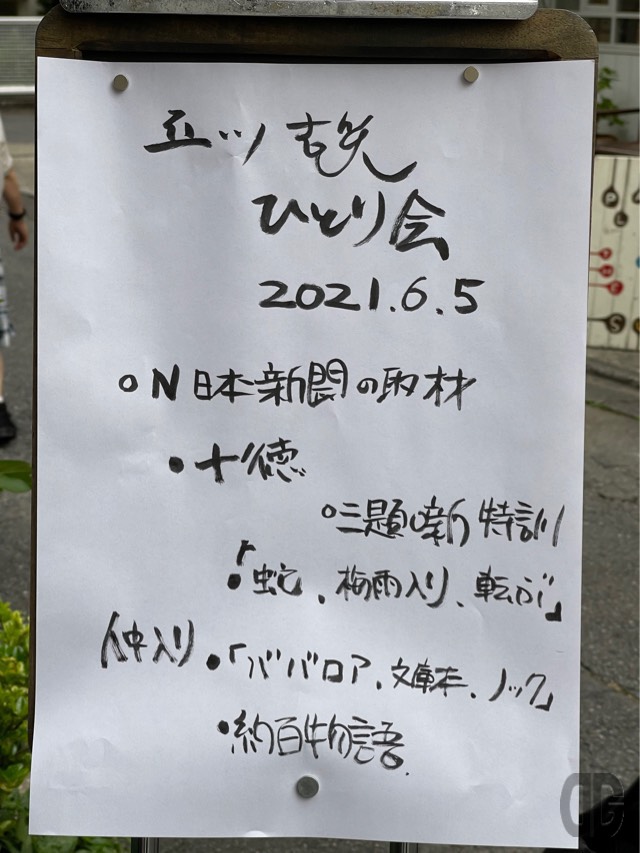 立川吉笑
ひとり会
2021.6.5
○N日本新聞の取材
・十徳
○三題噺特訓
・「蛇、梅雨入り、転ぶ」
仲入り
・「ババロア、文庫本、ノック」
・約百物語